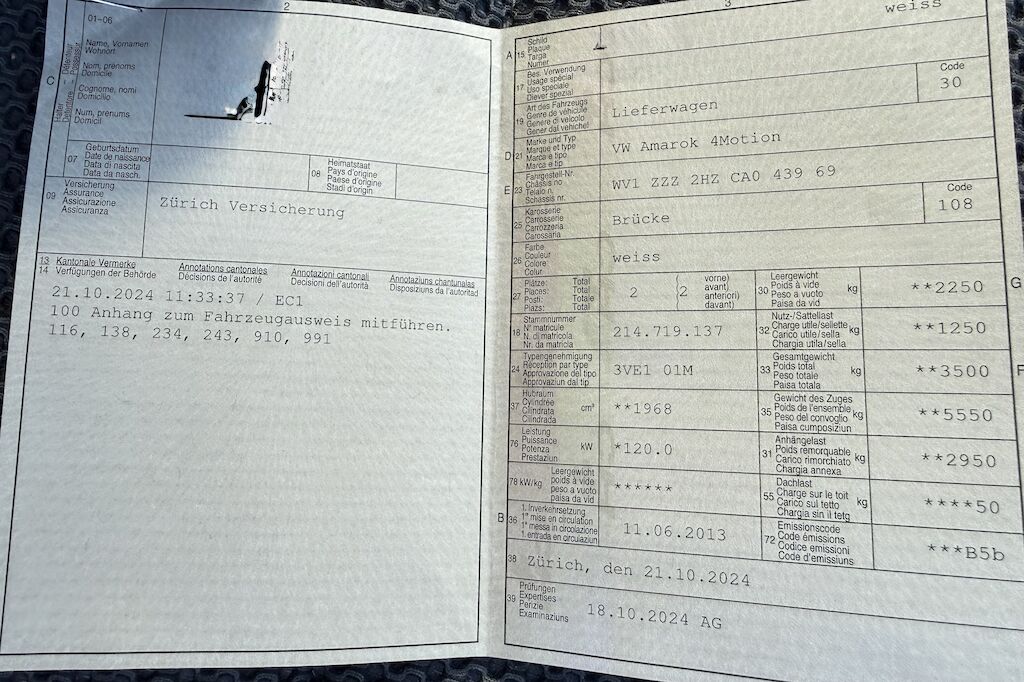 2
01-06
C
Halter – Détenteur
Detentore – Possessur
Name, Vornamen
Wohnort
Nom, prénoms
Domicile
Cognome, nomi
Domicilio
Num, prenums
Domicil
07
Geburtsdatum
Date de naissance
Data di nascita
Data da nasch.
08
Heimatstaat
Pays d'origine
Paese d'origine
Stadi d'origin
09
Versicherung
Assurance
Assicurazione
Assicuranza
Zürich Versicherung
13 Kantonale Vermerke
14 Verfügungen der Behörde
Annotations cantonales
Décisions de l'autorité
Annotazioni cantonali
Decisioni dell'autorità
Annotaziuns chantunalas
Disposiziuns da l'autoritad
21.10.2024 11:33:37 / EC1
100 Anhang zum Fahrzeugausweis mitführen.
116, 138, 234, 243, 910, 991
3
weiss
A 15
Schild
Plaque
Targa
Numer
17
Bes. Verwendung
Usage spécial
Uso speciale
Diever spezial
19
Art des Fahrzeugs
Genre de véhicule
Genere di veicolo
Gener dal vehichel
Lieferwagen
Code
30
D 21
Marke und Typ
Marque et type
Marca e tipo
Marca e tip
VW Amarok 4Motion
E 23
Fahrgestell-Nr.
Châssis no
Telaio n.
Schassis nr.
WV1 ZZZ 2HZ CA0 439 69
25
Karosserie
Carrosserie
Carrozzeria
Carossaria
Brücke
Code
108
26
Farbe
Couleur
Colore
Colur
weiss
27
Plätze: Total
Places: Total
Posti: Totale
Plazs: Total
2
(2
vorne)
avant)
anteriori)
davant)
30
Leergewicht
Poids à vide
Peso a vuoto
Paisa da vid
kg
**2250
G
18
Stammnummer
N° matricule
N. di matricola
Nr. da matricla
214.719.137
32
Nutz-/Sattellast
Charge utile/sellette
Carico utile/sella
Chargia utila/sella
kg
**1250
24
Typengenehmigung
Réception par type
Approvazione del tipo
Approvaziun dal tip
3VE1 01M
33
Gesamtgewicht
Poids total
Peso totale
Paisa totala
kg
**3500
F
37
Hubraum
Cylindrée
Cilindrata
Cilindrada
cm³
**1968
35
Gewicht des Zuges
Poids de l'ensemble
Peso del convoglio
Paisa cumposiziun
kg
**5550
76
Leistung
Puissance
Potenza
Prestaziun
kW
*120.0
31
Anhängelast
Poids remorquable
Carico rimorchiato
Chargia annexa
kg
**2950
78 kW/kg
Leergewicht
poids à vide
peso a vuoto
paisa da vid
******
55
Dachlast
Charge sur le toit
Carico sul tetto
Chargia sin il tetg
kg
****50
B 36
1. Inverkehrsetzung
1re mise en circulation
1a messa in circolazione
1. entrada en circulaziun
11.06.2013
72
Emissionscode
Code émissions
Codice emissioni
Code d'emissiuns
***B5b
38
Zürich, den 21.10.2024
39
Prüfungen
Expertises
Perizie
Examinaziuns
18.10.2024 AG